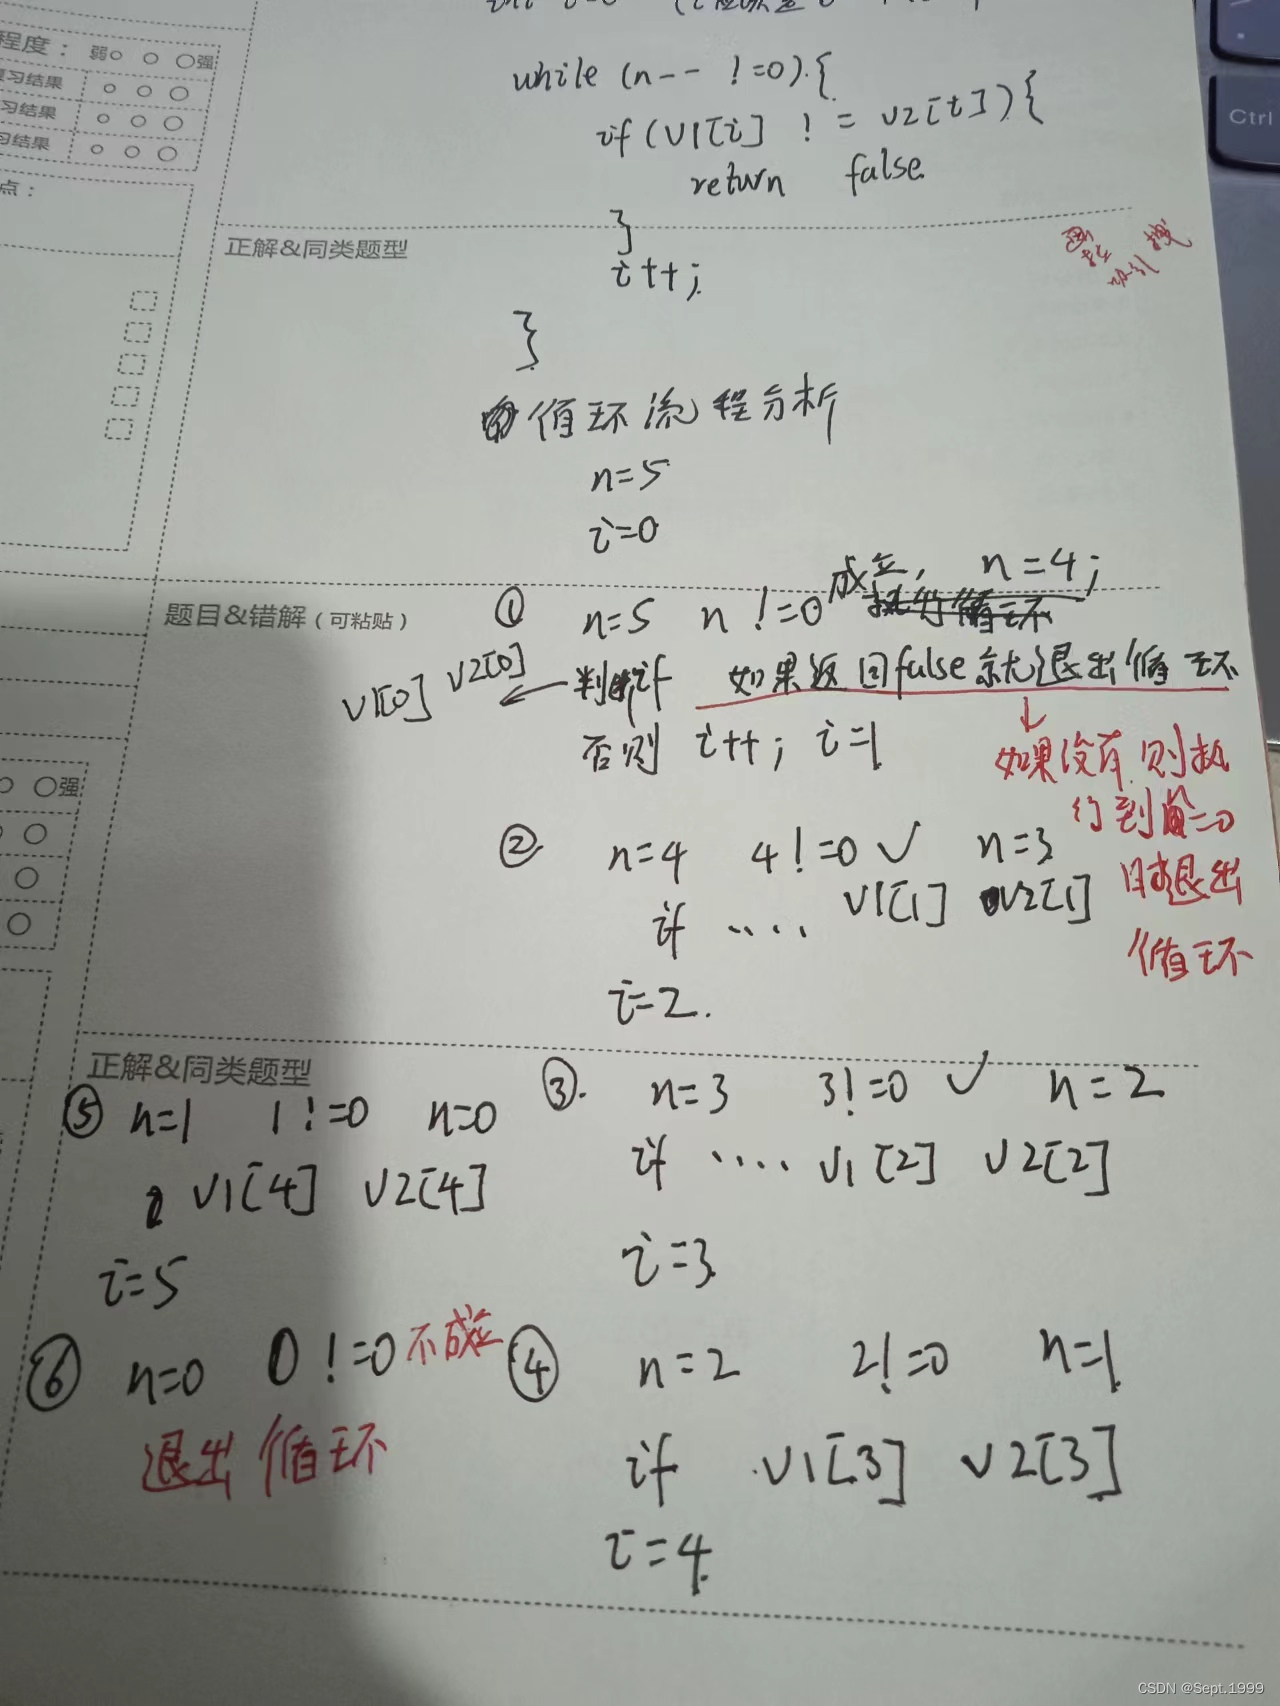 while (n-- !=0).{
if (V1[i] != V2[i]){
return false.
}
i++;
}
循环流程分析
n=5
i=0
程度: 弱 强
习结果
习结果
习结果
点:
正解&同类题型
题目&错解(可粘贴)
① n=5 n !=0 成立, n=4;
V1[0] V2[0] ← 判断if 如果返回false就退出循环
否则 i++; i=1
↓
如果没有,则执
行到n=0
时退出
循环
② n=4 4!=0 ✓ n=3
if .... V1[1] V2[1]
i=2.
强
正解&同类题型
③. n=3 3!=0 ✓ n=2
if .... V1[2] V2[2]
i=3
④ n=2 2!=0 n=1
if V1[3] V2[3]
i=4
⑤ n=1 1!=0 n=0
V1[4] V2[4]
i=5
⑥ n=0 0!=0 不成立
退出循环
Ctrl
CSDN @Sept.1999